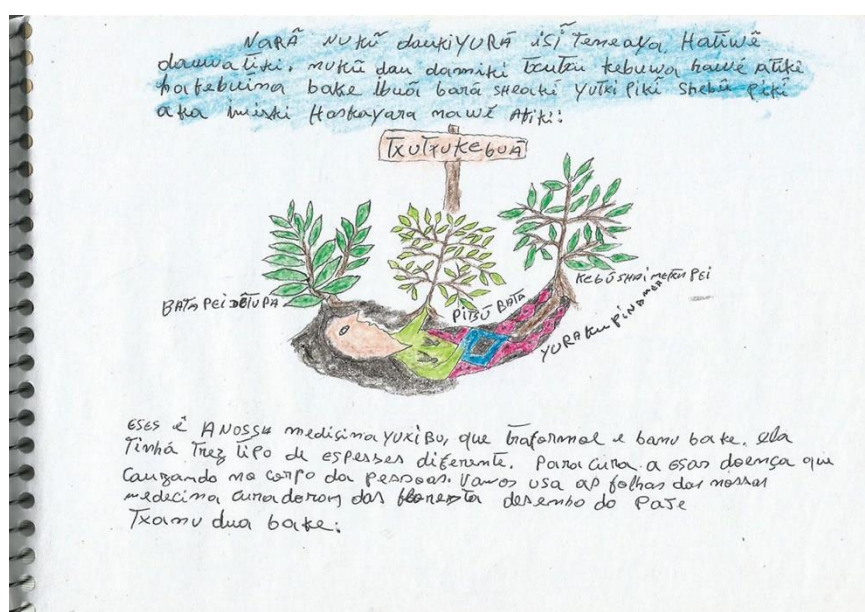 NARÃ NUKŨ dauKiYURÃ iSĨ Teneaya Hatiwẽ
dauwatiki. nukũ dau damiki Txutxu kebuwa hawẽ atiki
hatebuina bake ibuã barã sheaki yutxi piki Shebũ piki
aka iniski Haskayara nawẽ Atiki!
TXUTXUKEBUÃ
BATA PEI DẼTUPA
PIBŨ BATA
KEBŨSHAI METKU PEI
YURAKU PINO
ESES Ê A NOSSA medisima YUXiBU, que traformol e banu bake. ela
Tinhá Trez tipo de espesses diferente. Para cura a esas doença que
Cauzando no corpo da pessoas. Vamos usa as folhas das nossas
medecina curadoras das floresta desenho do PaJe
Txanu dua bake: